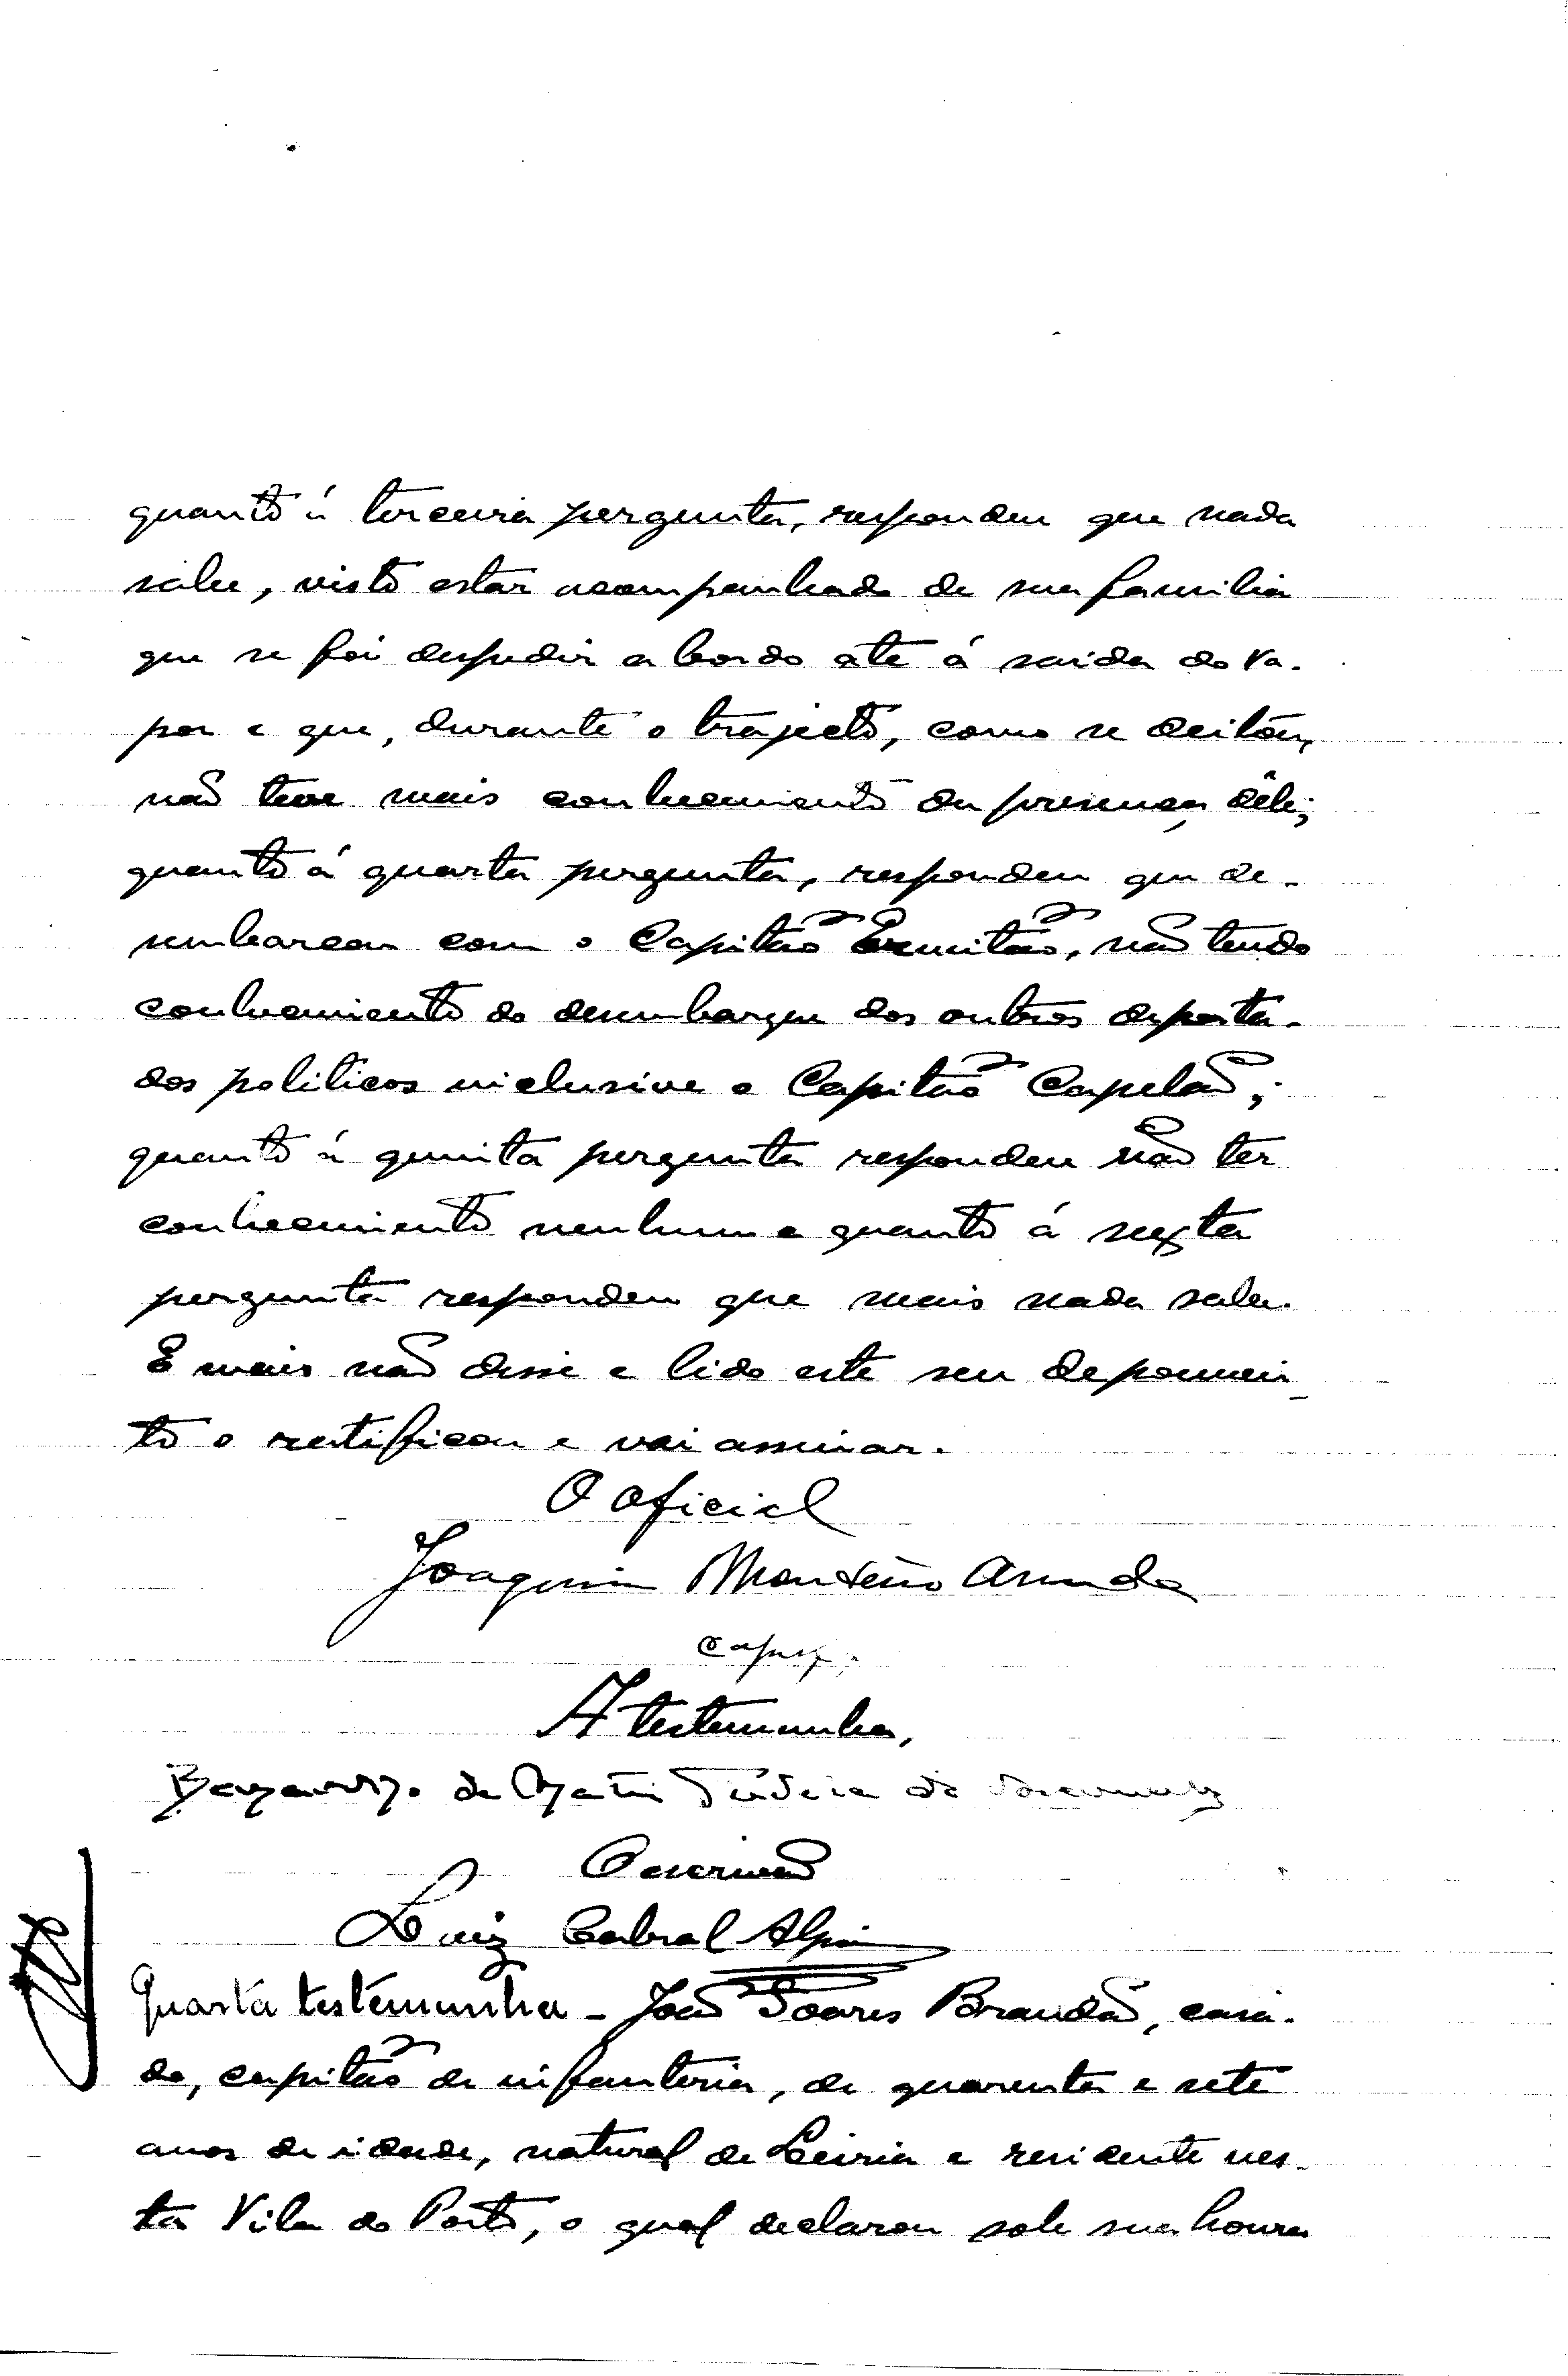 quanto á terceira pergunta, respondeu que nada
sabe, visto estar acompanhado de sua familia
que se foi despedir a bordo até á saida do va-
por e que, durante o trajecto, como se deitou,
não teve mais conhecimento da presença dêle;
quanto á quarta pergunta, respondeu que de-
sembarcou com o Capitão Ermitão, não tendo
conhecimento do desembarque dos outros deporta-
dos politicos inclusive o Capitão Capelão;
quanto á quinta pergunta respondeu não ter
conhecimento nenhum e quanto á sexta
pergunta respondeu que mais nada sabe.
E mais não disse e lido este seu depoimen-
to o ratificou e vai assinar.
O oficial
Joaquim Monteiro Arruda
A testemunha,
de
O escrivão
Luiz Cabral
Quarta testemunha - João Soares Brandão, casa-
do, capitão de infanteria, de quarenta e sete
anos de idade, natural de Leiria e residente nes-
ta Vila do Porto, o qual declarou sob sua honra